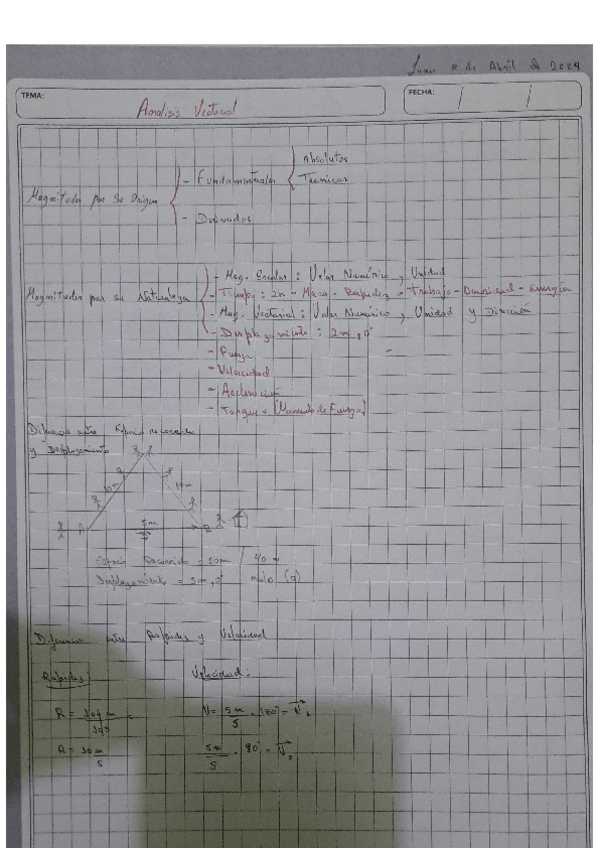 de Abril 2024
TEMA: Analisis Vectorial
FECHA: / /
Magnitudes por su Origen
- Fundamentales
absolutos
Tecnicas
- Derivados
Magnitudes por su Naturaleza
- Mag. Escalar : Valor Numérico, Unidad
- Tiempo : 2m - Masa - Rapidez - Trabajo - Densidad - Energía
- Mag. Vectorial : Valor Numérico, Unidad y Dirección
- Desplazamiento : 2m, 0°
- Fuerza
- Velocidad
- Aceleración
- Torque o [Momento de Fuerza]
Diferencia entre Espacio recorrido
y Desplazamiento
A
B
5m
Espacio Recorrido = 20m
Desplazamiento = 5m, 0°
Diferencia entre Rapidez y Velocidad
Rapidez:
Velocidad:
R =
V = 5m/5 . 180° =
R = 10m/5
5m/5 . 90° =